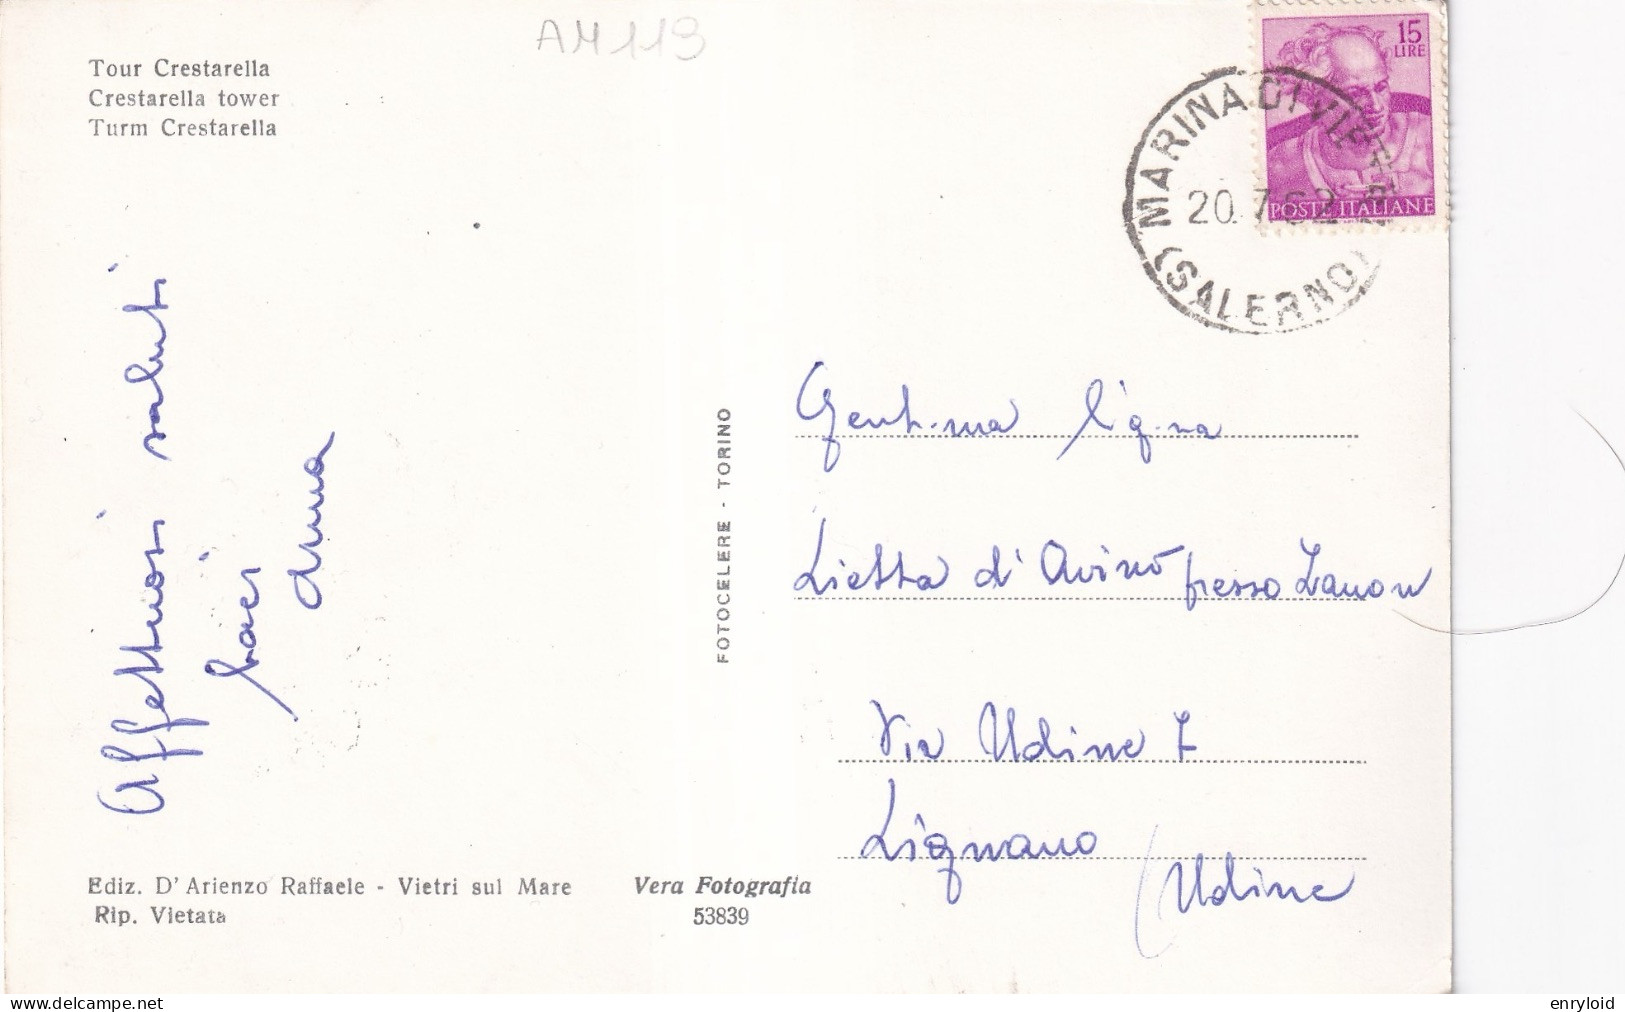 AM 119
Tour Crestarella
Crestarella tower
Turm Crestarella
15
LIRE
POSTE ITALIANE
MARINA DI VIETRI
20.7.62
(SALERNO)
Affettuosi saluti
baci
Anna
FOTOCELERE - TORINO
Gent.ma Sig.na
Lietta d'Avino presso Zanon
Via Udine 7
Lignano
(Udine
Ediz. D'Arienzo Raffaele - Vietri sul Mare
Rip. Vietata
Vera Fotografia
53839
enryloid
www.delcampe.net